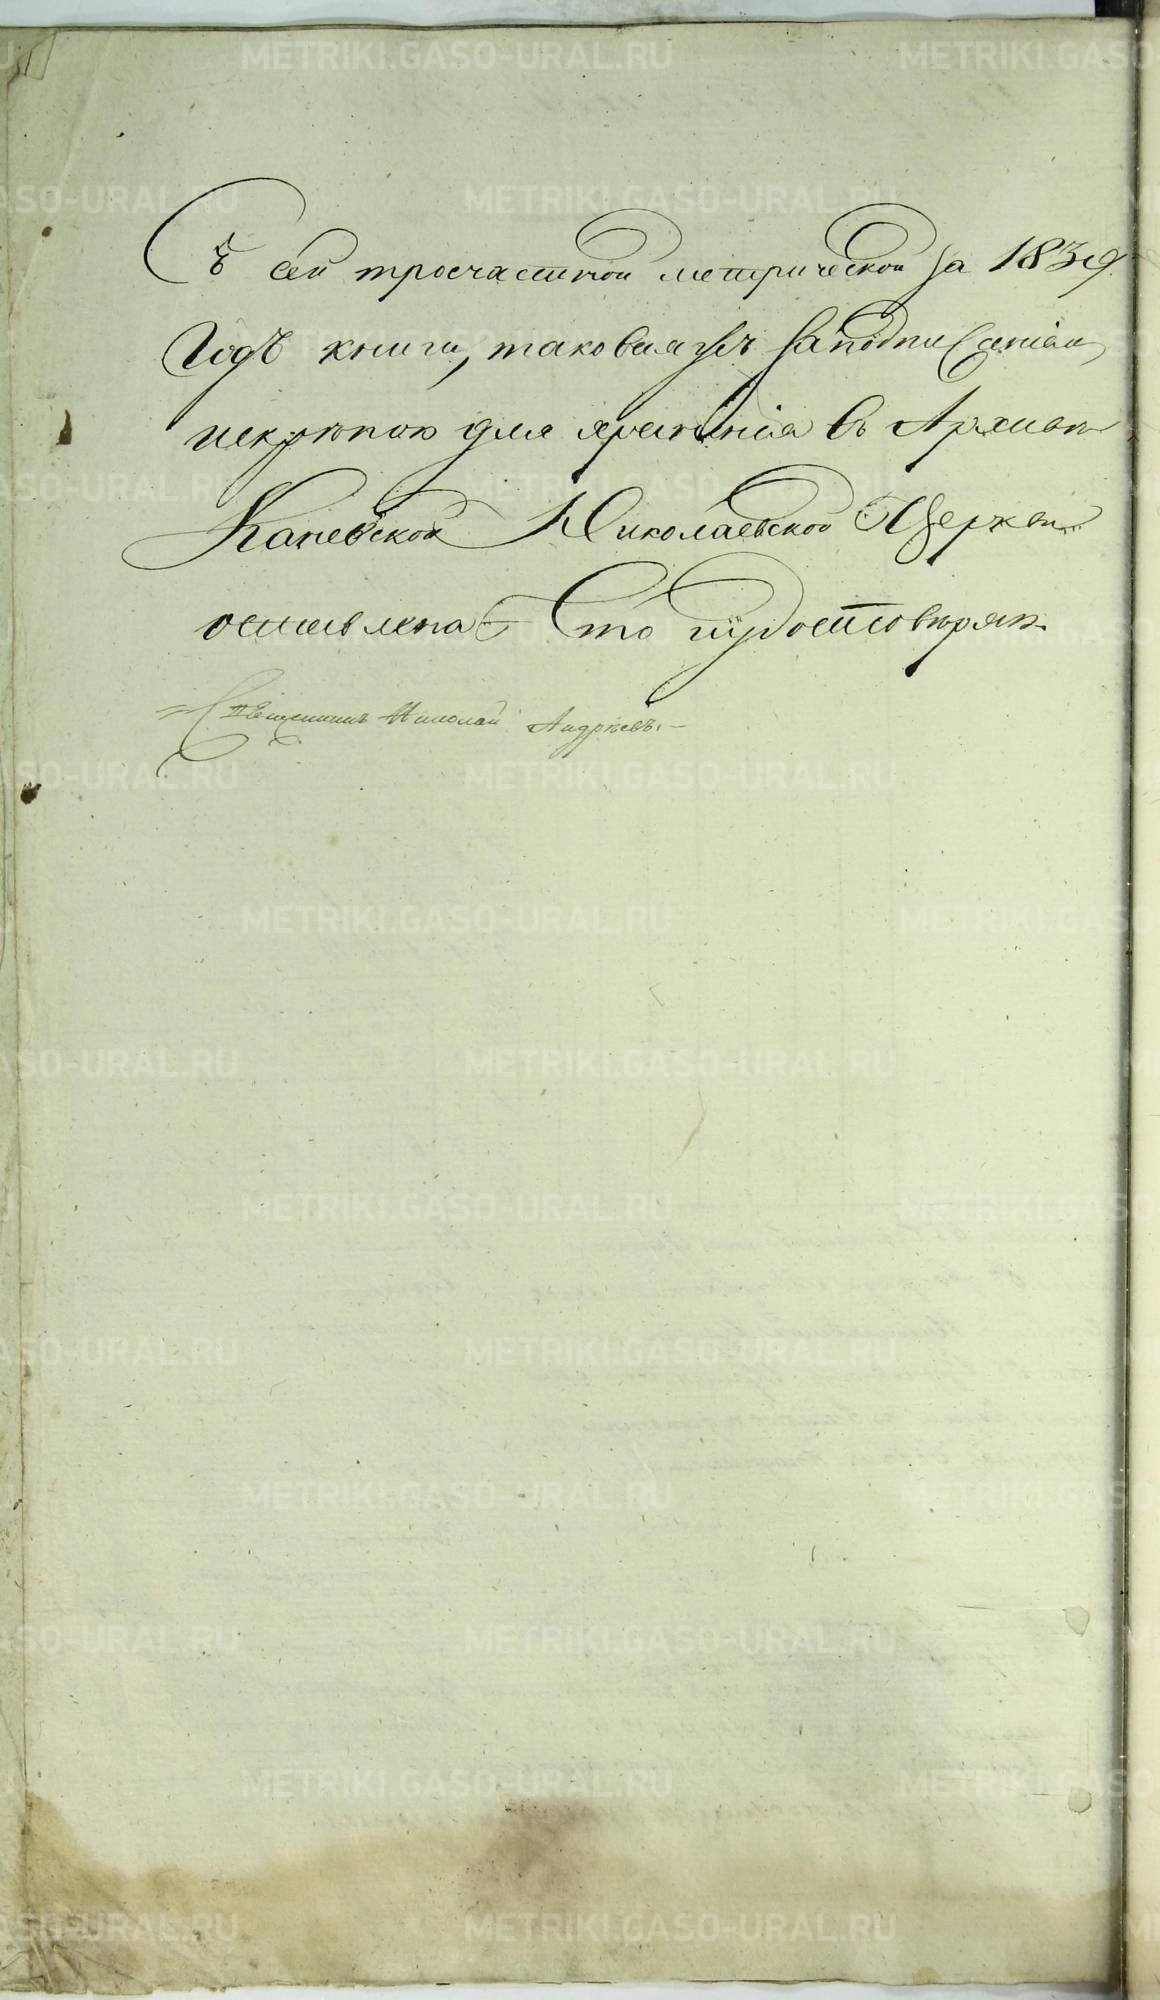 Съ сей троечастной метрической за 1839.
Годъ книги, таковая жъ заподписаніем,
искрепою для храненія въ Архиве
Каневской Николаевской Церкви
оставлена что и удостоверяю.
Священникъ Николай Андреевъ.
METRIKI.GASO-URAL.RU